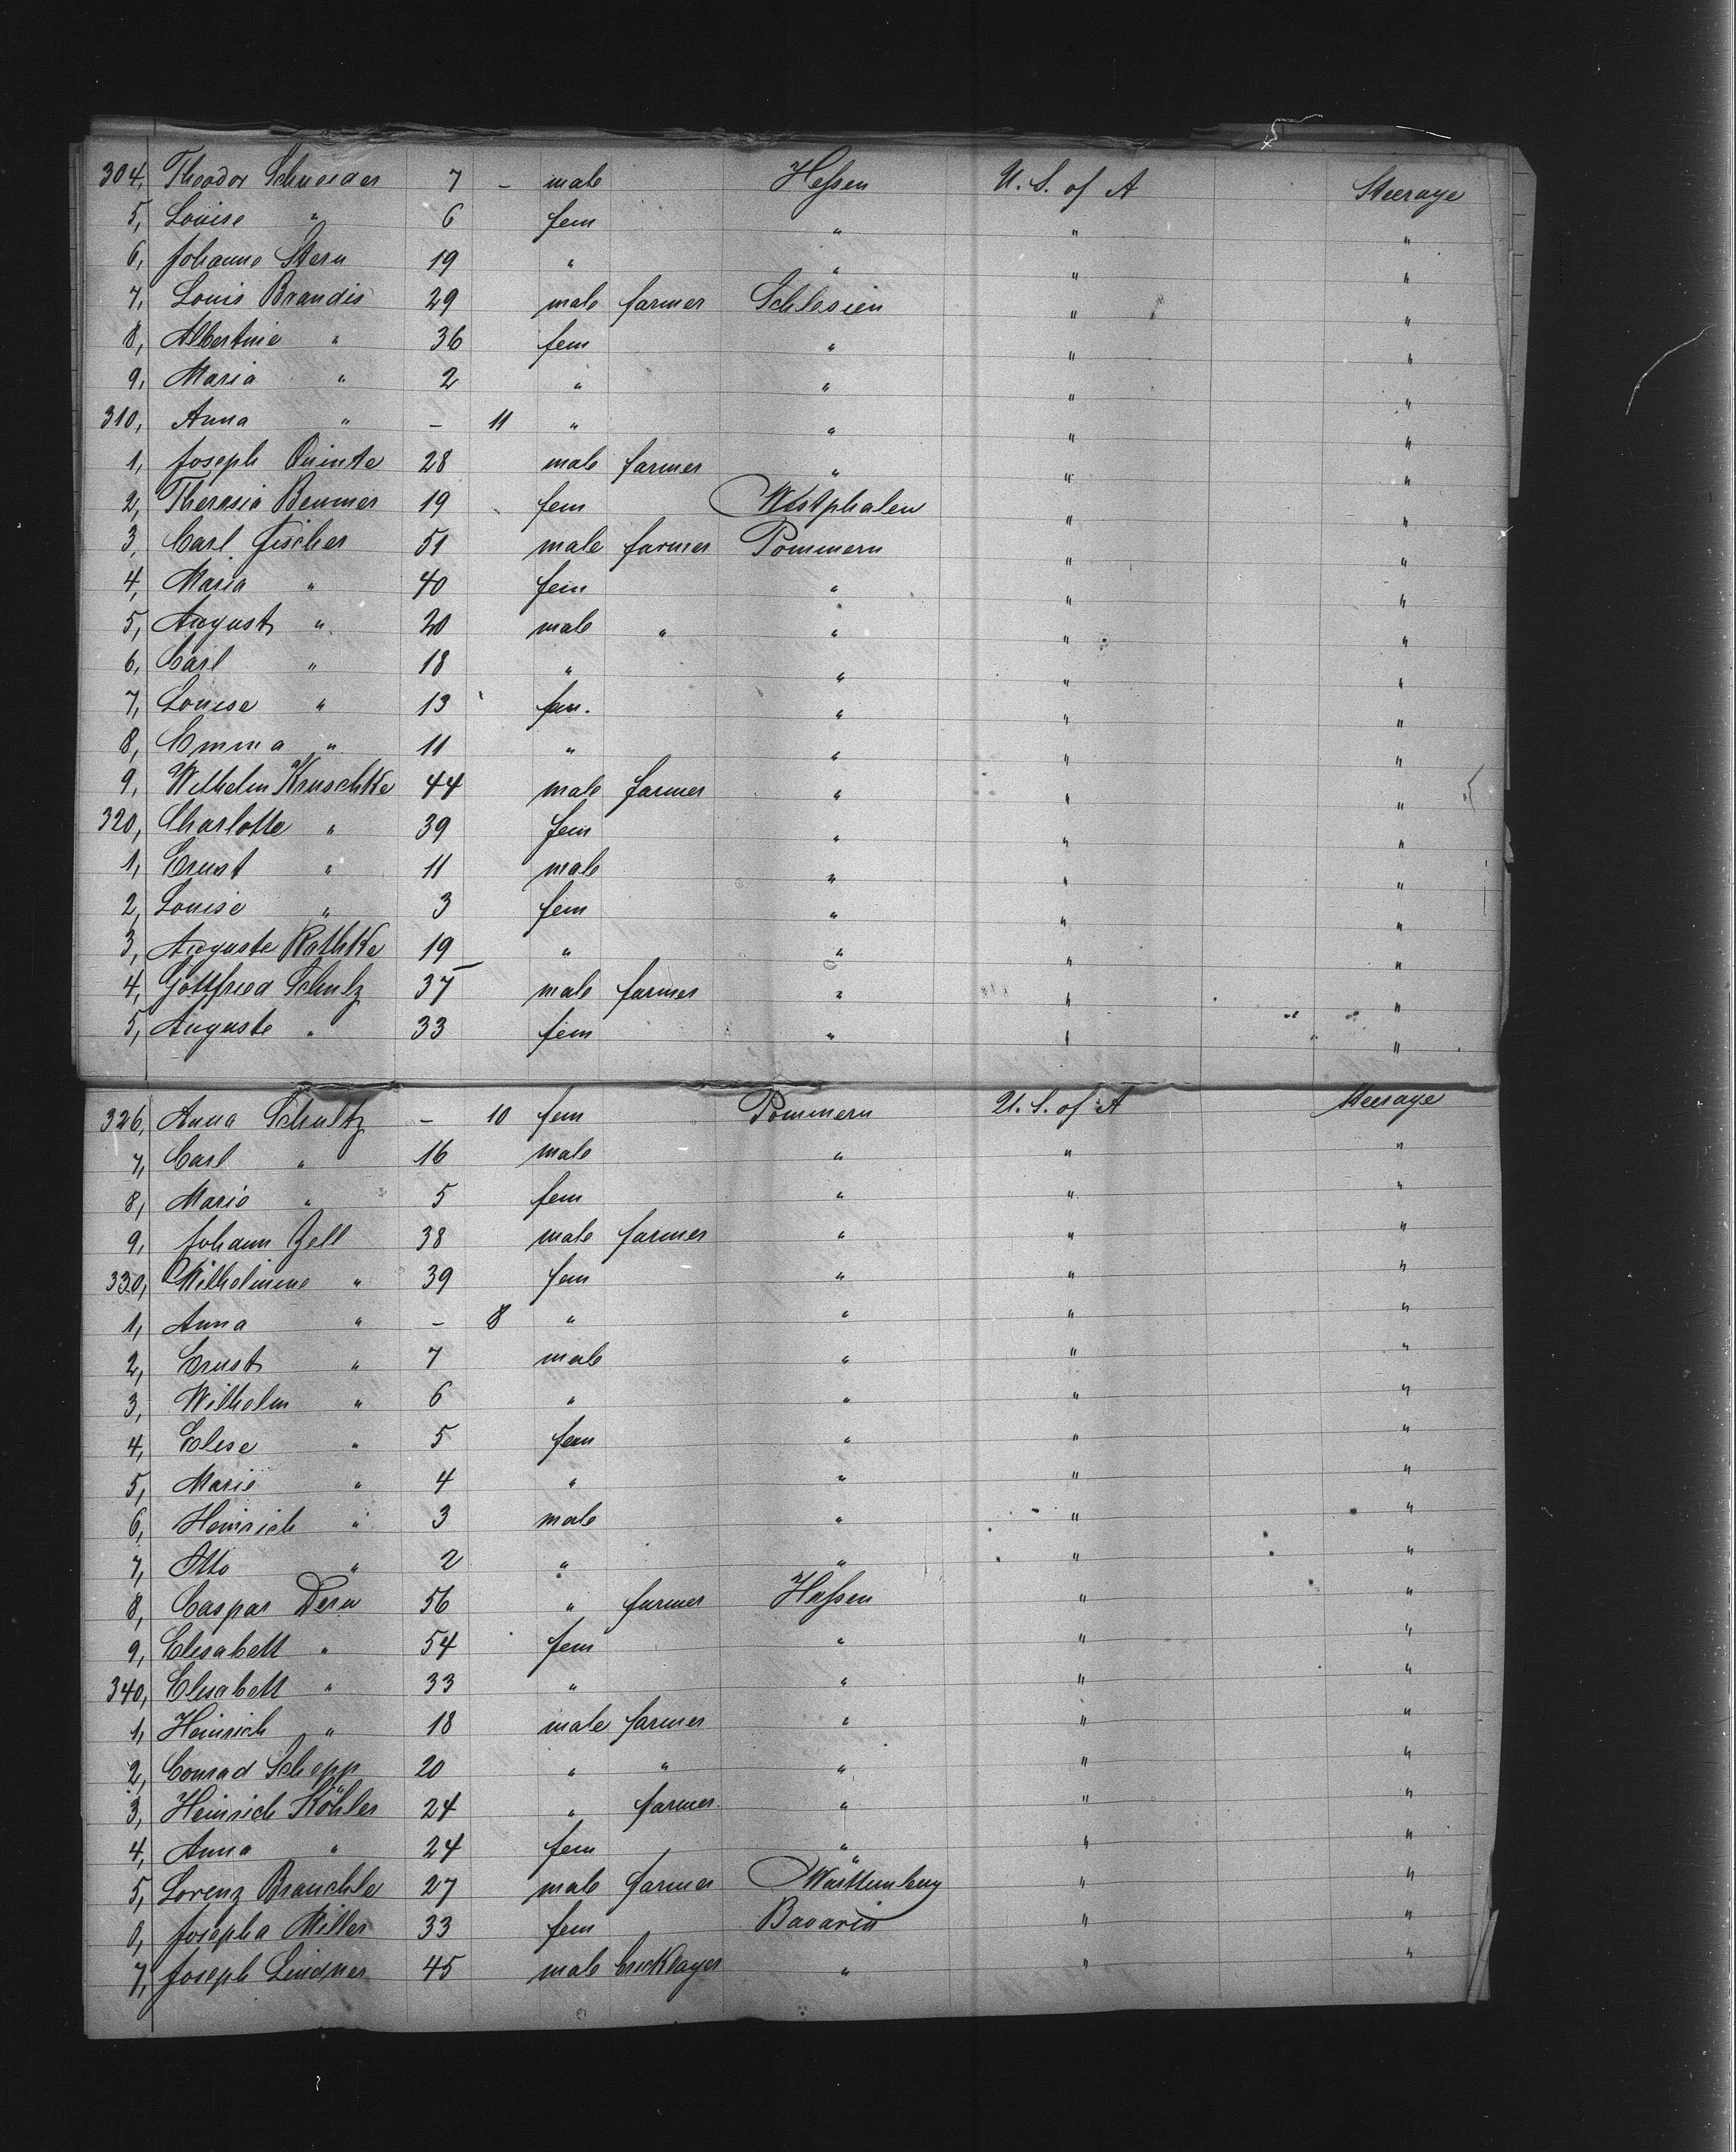 304, Theodor Schneider 7 – male Heſsen U. S. of A Steerage
5, Louise " 6 fem " " "
6, Johanne Stern 19 " " " "
7, Louis Brandis 29 male farmer Schlesien " "
8, Albertine " 36 fem " " "
9, Maria " 2 " " " "
310, Anna " – 11 " " " "
1, Joseph Quinte 28 male farmer " " "
2, Theresia Bemmer 19 fem Westphalen " "
3, Carl Fischer 51 male farmer Pommern " "
4, Maria " 40 fem " " "
5, August " 20 male " " " "
6, Carl " 18 " " " "
7, Louise " 13 fem. " " "
8, Emma " 11 " " " "
9, Wilhelm Kruschke 44 male farmer " " "
320, Charlotte " 39 fem " " "
1, Ernst " 11 male " " "
2, Louise " 3 fem " " "
3, Auguste Rathke 19 " " " "
4, Gottfried Schulz 37 male farmer " " "
5, Auguste " 33 fem " " "
326, Anna Schultz – 10 fem Pommern U. S. of A Steerage
7, Carl " 16 male " " "
8, Marie " 5 fem " " "
9, Johann Zell 38 male farmer " " "
330, Wilhelmine " 39 fem " " "
1, Anna " – 8 " " " "
2, Ernst " 7 male " " "
3, Wilhelm " 6 " " " "
4, Elise " 5 fem " " "
5, Marie " 4 " " " "
6, Heinrich " 3 male " " "
7, Otto " 2 " " " "
8, Caspar Dern 56 " farmer Heſsen " "
9, Elisabeth " 54 fem " " "
340, Elisabeth " 33 " " " "
1, Heinrich " 18 male farmer " " "
2, Conrad Schepp 20 " " " " "
3, Heinrich Köhler 24 " farmer. " " "
4, Anna " 24 fem " " "
5, Lorenz Brauchle 27 male farmer Württemberg " "
6, Josepha Miller 33 fem Bavaria " "
7, Joseph Lindner 45 male bricklayer " " "